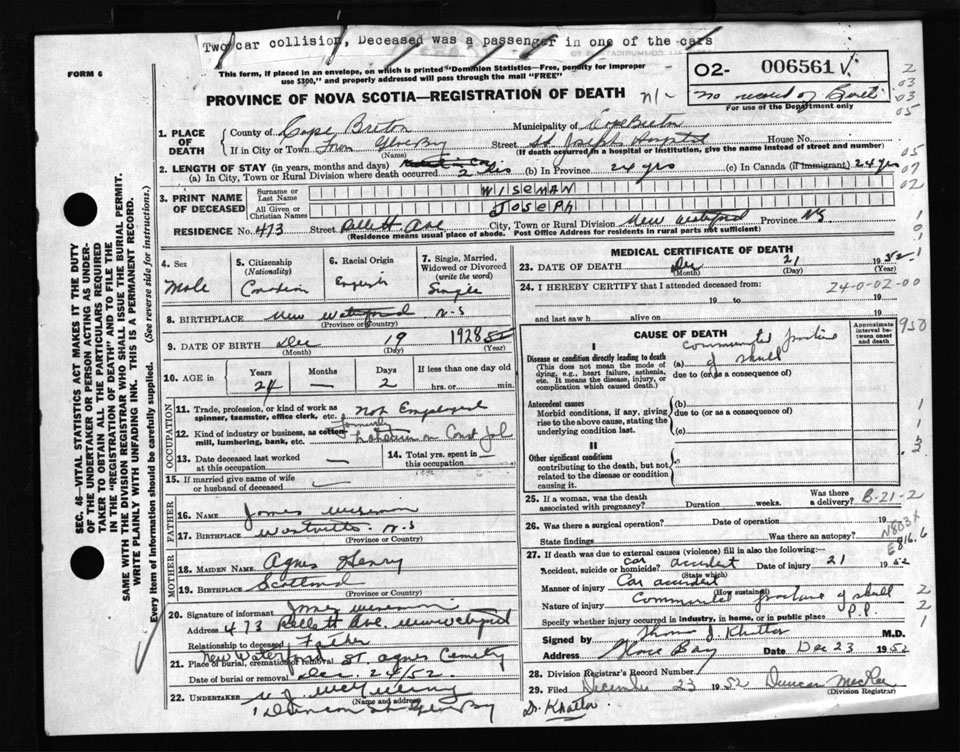 Two car collision, Deceased was a passenger in one of the cars
FORM 6
This form, if placed in an envelope, on which is printed "Dominion Statistics—Free, penalty for improper
use $300," and properly addressed will pass through the mail "FREE"
O2- 006561
no record of
For use of the Department only
PROVINCE OF NOVA SCOTIA—REGISTRATION OF DEATH
1. PLACE OF DEATH
County of Cape Breton Municipality of Cape Breton
If in City or Town Town Glace Bay Street St. Joseph's Hospital House No.
(Name) (If death occurred in a hospital or institution, give the name instead of street and number)
2. LENGTH OF STAY (in years, months and days)
(a) In City, Town or Rural Division where death occurred (b) In Province 24 yrs (c) In Canada (if immigrant) 24 yrs
3. PRINT NAME OF DECEASED
Surname or Last Name WISEMAN
All Given or Christian Names JOSEPH
RESIDENCE No. 473 Street Ave City, Town or Rural Division New Waterford Province N.S
(Residence means usual place of abode. Post Office Address for residents in rural parts not sufficient)
4. Sex
Male
5. Citizenship
(Nationality)
Canadian
6. Racial Origin
English
7. Single, Married, Widowed or Divorced
(write the word)
Single
8. BIRTHPLACE New Waterford N-S
(Province or Country)
9. DATE OF BIRTH Dec 19 1928
(Month) (Day) (Year)
10. AGE in Years Months Days If less than one day old
24 — 2 hrs. or min.
OCCUPATION
11. Trade, profession, or kind of work as
spinner, teamster, office clerk, etc. Not Employed
12. Kind of industry or business, as cotton-
mill, lumbering, bank, etc. formerly
13. Date deceased last worked
at this occupation —
14. Total yrs. spent in
this occupation —
15. If married give name of wife
or husband of deceased —
FATHER
16. NAME James Wiseman
17. BIRTHPLACE Westville N-S
(Province or Country)
MOTHER
18. MAIDEN NAME Agnes Henry
19. BIRTHPLACE Scotland
(Province or Country)
20. Signature of informant James Wiseman
Address 473 Ave. New Waterford
Relationship to deceased Father
21. Place of burial, cremation or removal New Waterford St. Agnes Cemetery
Date of burial or removal Dec. 24/52.
22. UNDERTAKER
(Name and address)
Glace Bay
MEDICAL CERTIFICATE OF DEATH
23. DATE OF DEATH Dec 21 1952
(Month) (Day) (Year)
24. I HEREBY CERTIFY that I attended deceased from:
24-0-02-00
19 to 19
and last saw h alive on 19
CAUSE OF DEATH
Approximate interval between onset and death
I
Disease or condition directly leading to death
(This does not mean the mode of
dying, e.g., heart failure, asthenia,
etc. It means the disease, injury, or
complication which caused death.)
(a) Comminuted fracture of skull
due to (or as a consequence of)
Antecedent causes
Morbid conditions, if any, giving
rise to the above cause, stating the
underlying condition last.
(b)
due to (or as a consequence of)
(c)
II
Other significant conditions
contributing to the death, but not
related to the disease or condition
causing it.
25. If a woman, was the death
associated with pregnancy? Duration weeks. Was there
a delivery?
B-21-2
26. Was there a surgical operation? Date of operation 19
State findings Was there an autopsy?
N803X
E816.6
27. If death was due to external causes (violence) fill in also the following:—
Accident, suicide or homicide? car accident Date of injury 21 1952
(State which)
Manner of injury Car accident
(How sustained)
Nature of injury Comminuted fracture of skull
Specify whether injury occurred in industry, in home, or in public place P.P.
Signed by J. Khattar M.D.
Address Glace Bay Date Dec 23 1952
28. Division Registrar's Record Number
29. Filed December 23 1952 Duncan MacRae
(Division Registrar)
Dr. Khattar
SEC. 46—VITAL STATISTICS ACT MAKES IT THE DUTY
OF THE UNDERTAKER OR PERSON ACTING AS UNDER-
TAKER TO OBTAIN ALL THE PARTICULARS REQUIRED
IN THE "REGISTRATION OF DEATH" AND TO FILE THE
SAME WITH THE DIVISION REGISTRAR WHO SHALL ISSUE THE BURIAL PERMIT.
WRITE PLAINLY WITH UNFADING INK. THIS IS A PERMANENT RECORD.
Every item of Information should be carefully supplied. (See reverse side for instructions.)